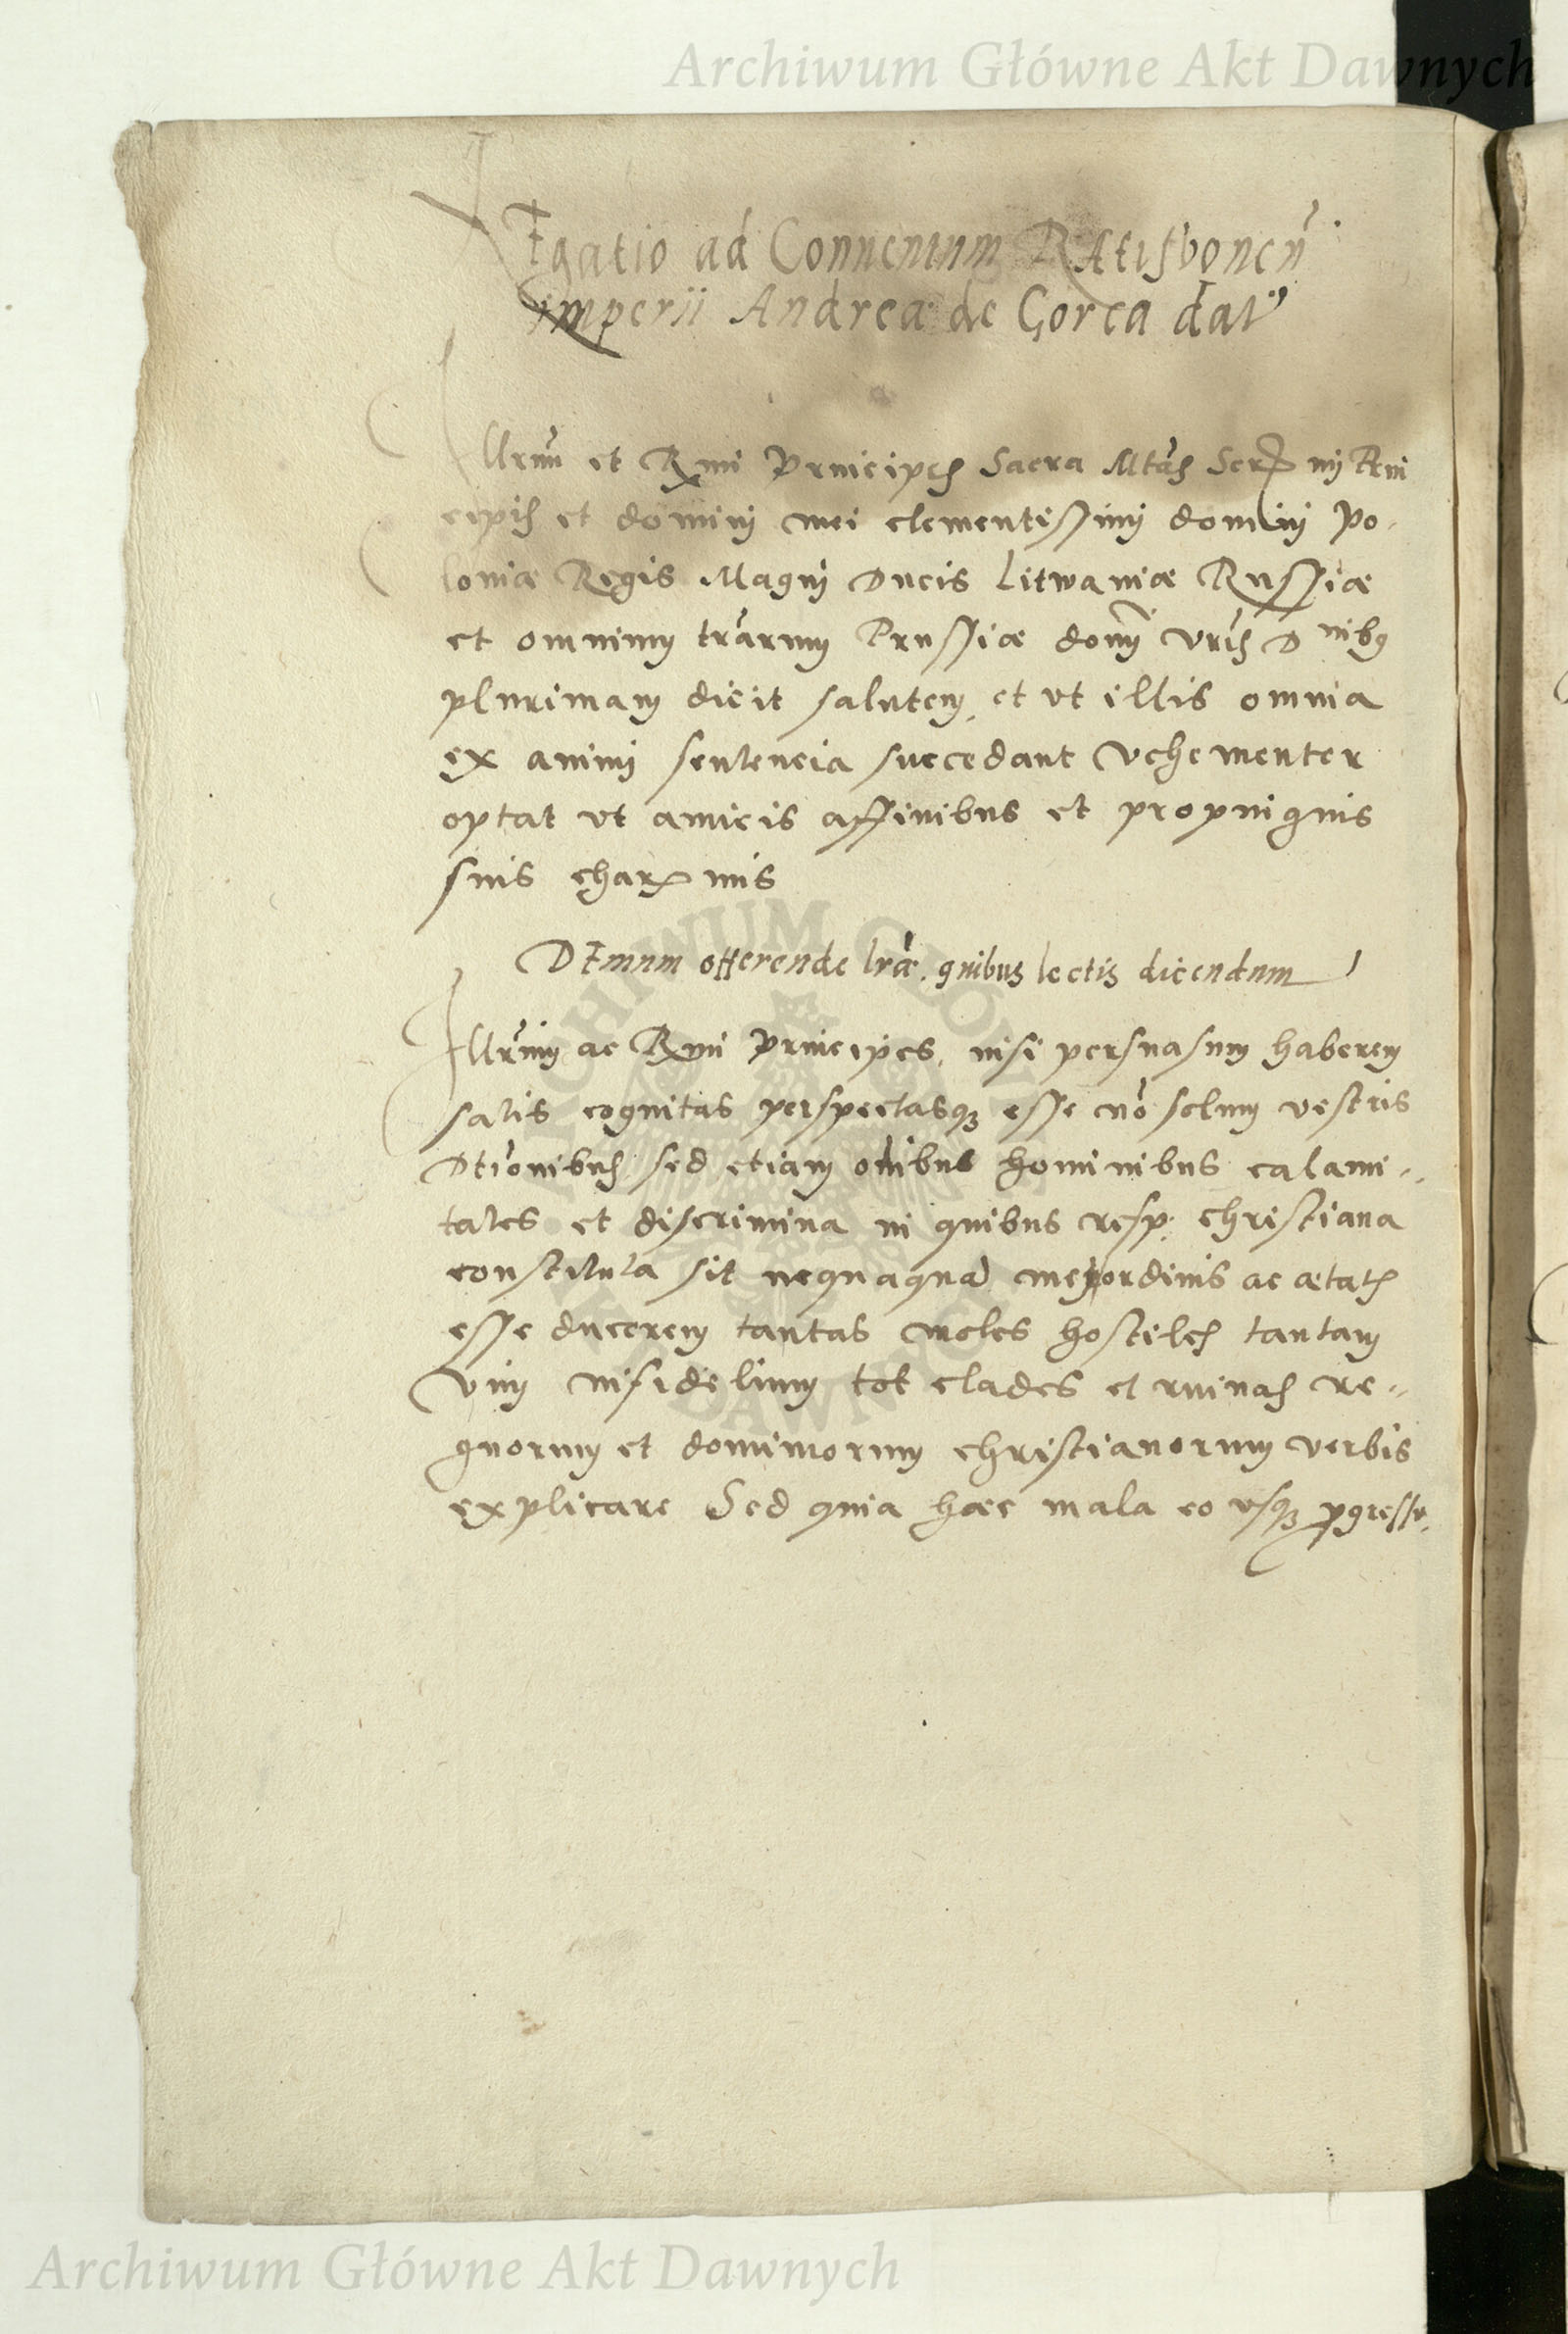 Archiwum Główne Akt Dawnych
LEgatio ad Conuentum RAtisbonen̄
imperii Andreæ de Gorca dat'
Illrmi et Rmi Principes Sacra Mtas Sermi Prin
cipis et domini mei clementissimi domini Po-
loniæ Regis Magni Ducis Litwaniæ Russiæ
et omnium trarum Prussiæ domi vris D nibq
plurimam dicit salutem, et vt illis omnia
ex animi sentencia succedant vehementer
optat vt amicis affinibus et propinquis
suis charmis
DEmum offerende lræ. quibus lectis dicendum
Illrmi ac Rmi Principes, nisi persuasum haberem
satis cognitas perspectasq3 esse nō solum vestris
Dtionibus sed etiam oībus hominibus calami-
tates et discrimina in quibus resp: christiana
constituta sit nequaquā mei ordinis ac ætatis
esse ducerem tantas moles hostiles tantam
vim infidelium tot clades et ruinas re-
gnorum et dominiorum christianorum verbis
explicare Sed quia hæc mala eo vsq3 pgressa
ARCHIWUM GŁÓWNE
AKT DAWNYCH
Archiwum Główne Akt Dawnych